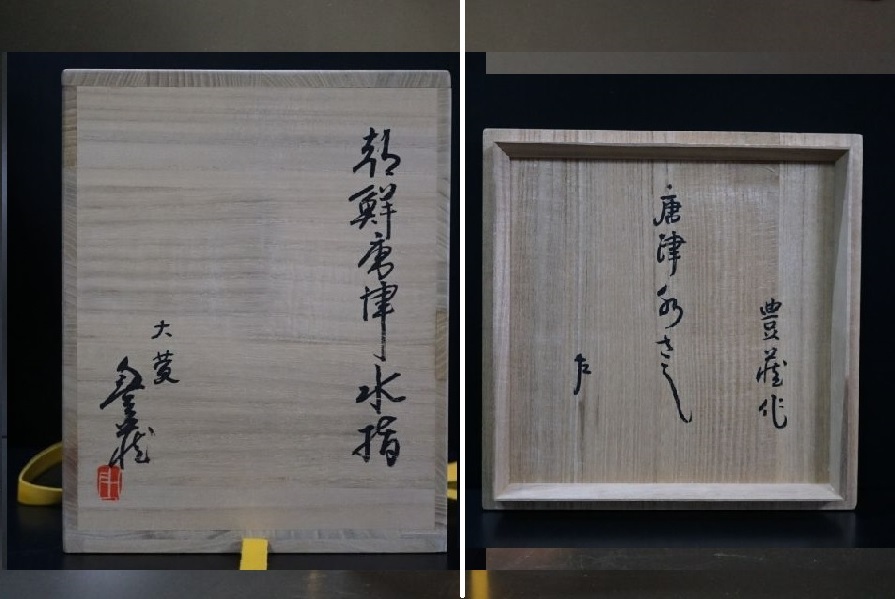 朝鮮唐津水指
大菱
豊藏作
唐津水さし